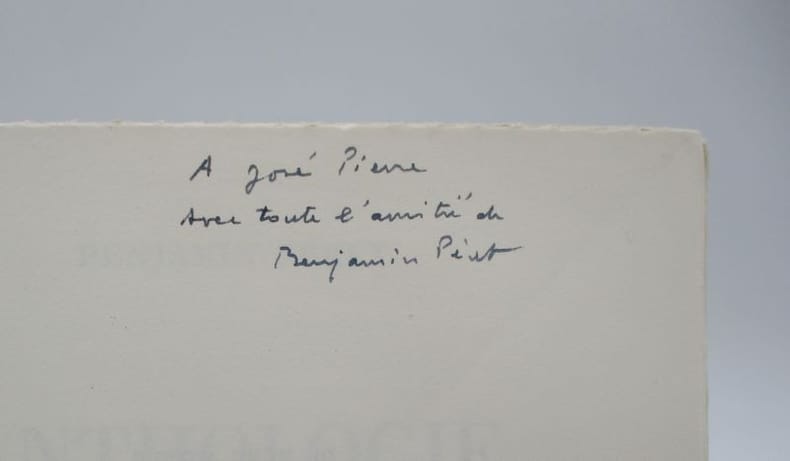 A José Pierre
Avec toute l'amitié de
Benjamin Péret
ANTHOLOGIE